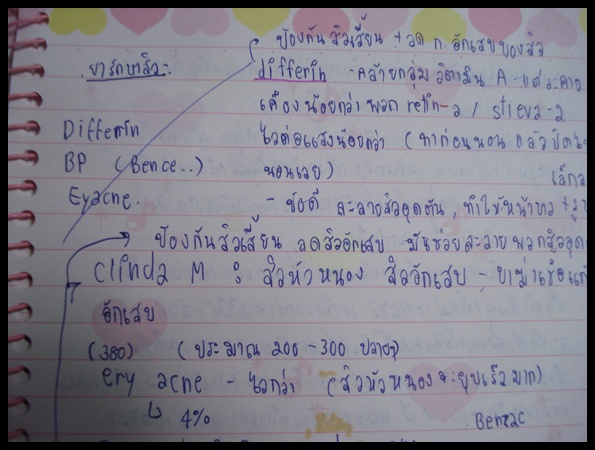 ป้องกันสิวเสี้ยน + ลด ก. อักเสบของสิว
ยารักษาสิว :-
differin - คล้ายกลุ่ม วิตามิน A - แต่ระคาย
เคืองน้อยกว่าพวก retin-a / stieva-a
Differin
ไวต่อแสงน้อยกว่า (ทาก่อนนอน แล้ว
BP (Bence..)
นอนเลย)
Eryacne.
- ข้อดี ละลายสิวอุดตัน, ทำให้หน้าขาว +
ป้องกันสิวเสี้ยน ลดสิวอักเสบ มันช่วยละลายพวกสิวอุด
Clinda M : สิวหัวหนอง สิวอักเสบ - ยาฆ่าเชื้อแก้
อักเสบ
(380) (ประมาณ 200 - 300 ปลาย)
ery acne - ไวกว่า (สิวหัวหนองจะยุบเร็วมาก)
4%
Benzac